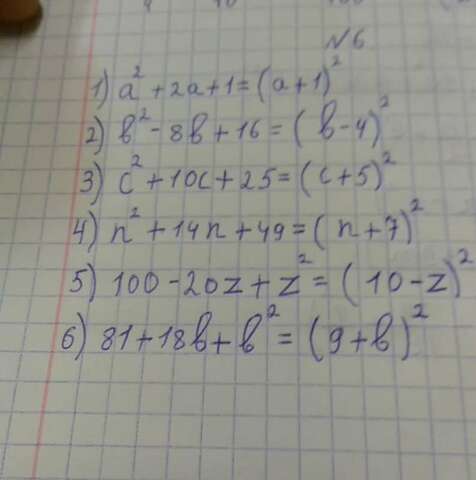 №6
1) a² + 2a + 1 = (a + 1)²
2) b² - 8b + 16 = (b - 4)²
3) c² + 10c + 25 = (c + 5)²
4) n² + 14n + 49 = (n + 7)²
5) 100 - 20z + z² = (10 - z)²
6) 81 + 18b + b² = (9 + b)²